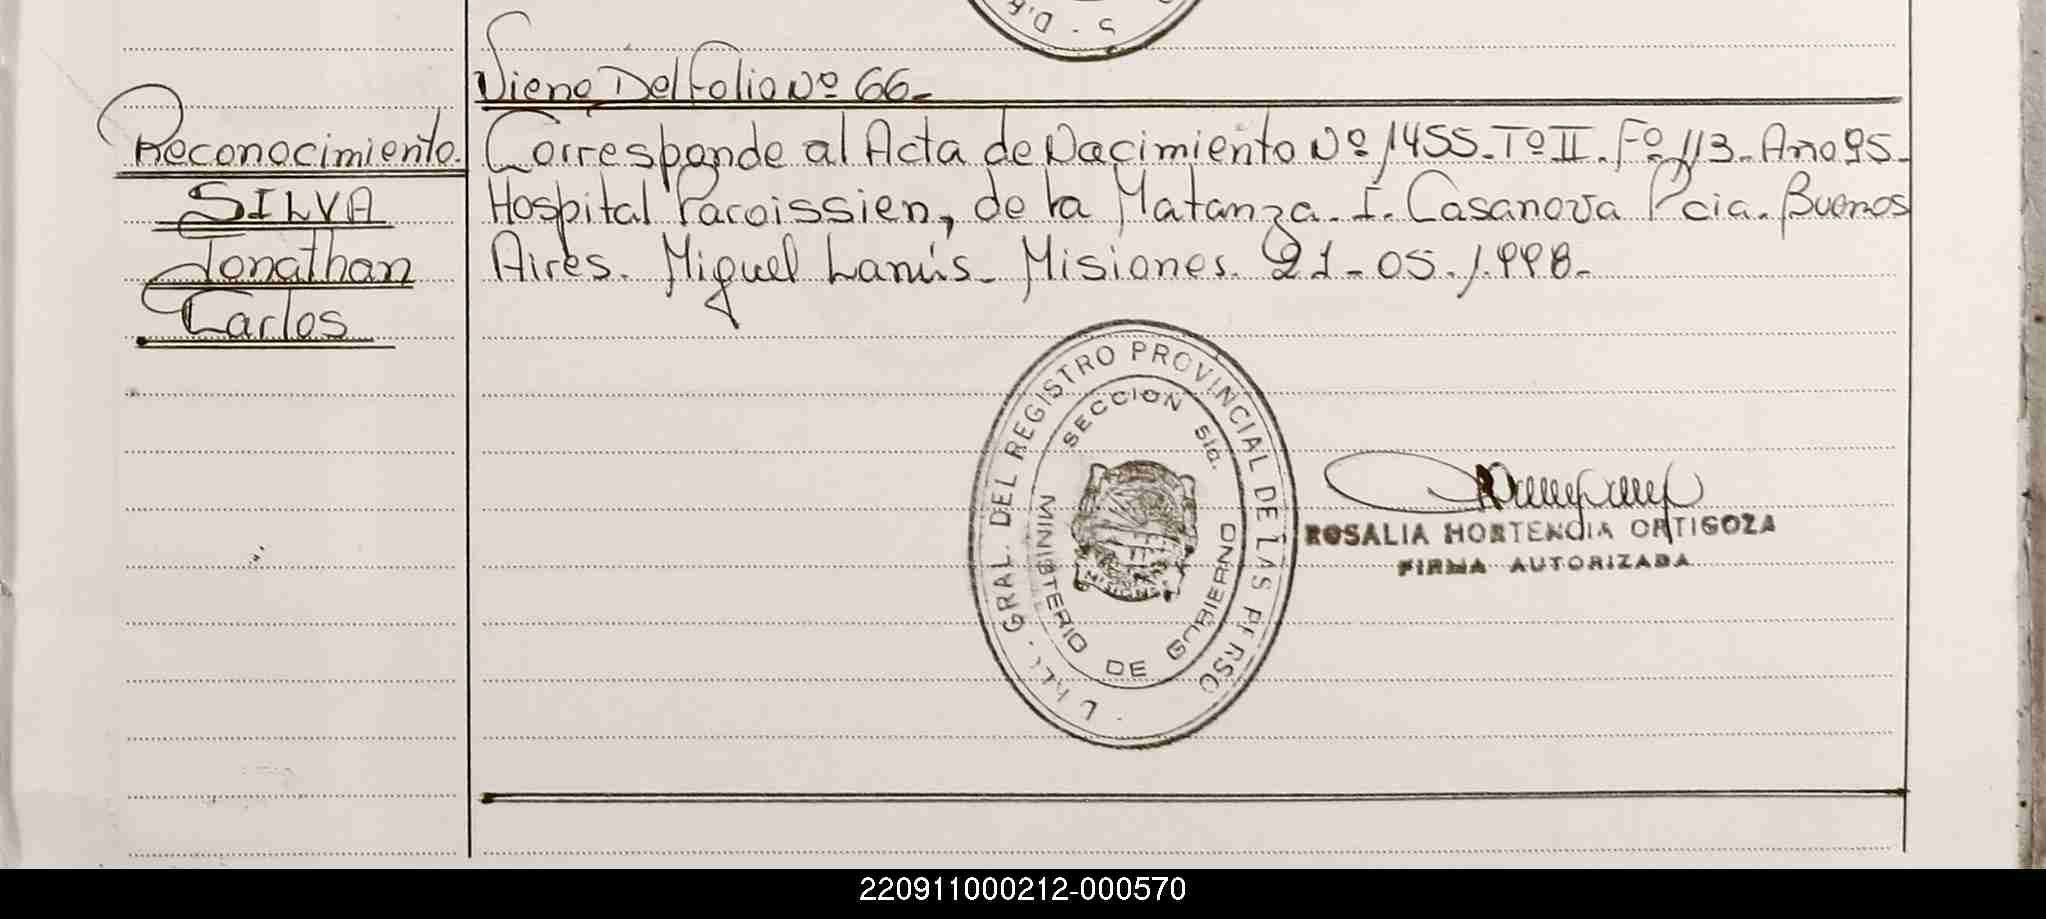 S. D.
Viene Del Folio Nº 66-
Reconocimiento.
SILVA
Jonathan
Carlos
Corresponde al Acta de Nacimiento Nº 1455. Tº II. Fº 113. Año 95.
Hospital Paroissien, de la Matanza. I. Casanova Pcia. Buenos
Aires. Miguel Lanús- Misiones. 21-05.1.998.
GRAL. DEL REGISTRO PROVINCIAL DE LAS PERSO
SECCION SIG.
MINISTERIO DE GOBIERNO
MISIONES
ROSALIA HORTENCIA ORTIGOZA
FIRMA AUTORIZADA
220911000212-000570